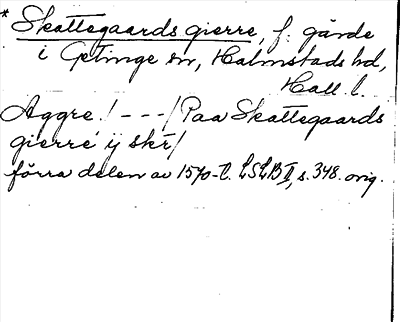 * Skattegaards gierre, f. gärde
i Getinge sn, Halmstads hd,
Hall. l.
Aggre! - - - / Paa Skattegaards
gierre ij skr/
förra delen av 1570-t. LSLB II, s. 348. orig.